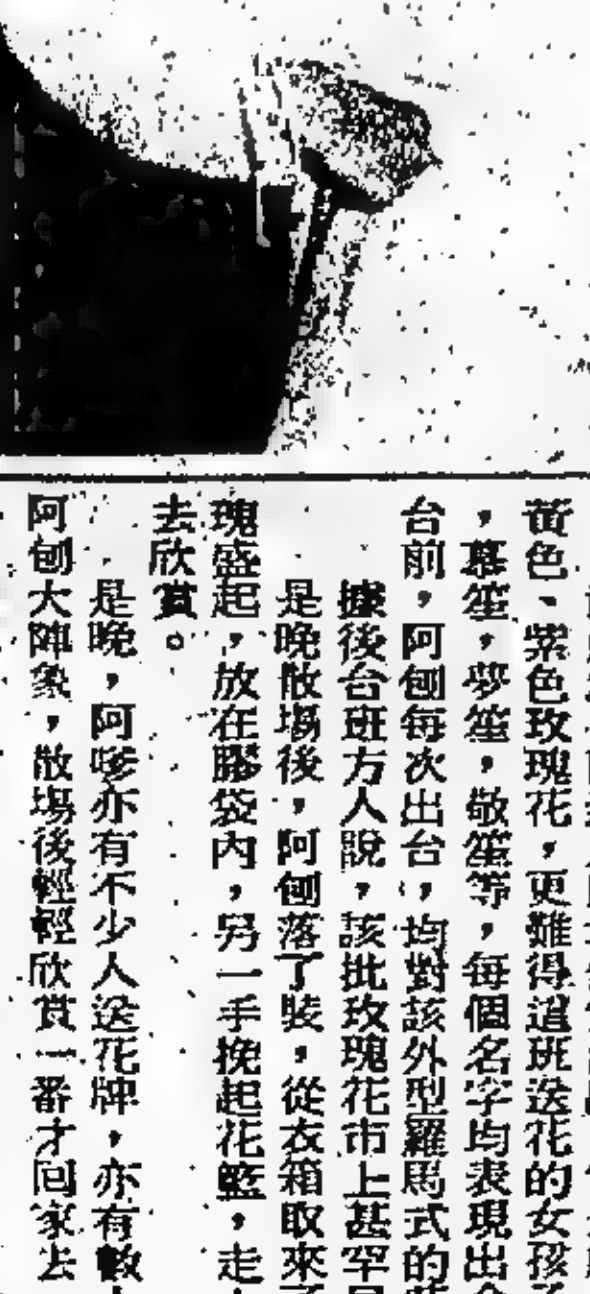 黃色、紫色玫瑰花，更難得這班送花的女孩
，慕笙，夢笙，敬笙等，每個名字均表現出
台前，阿刨每次出台，均對該外型羅馬式的
據後台班方人說，該批玫瑰花市上甚罕
是晚散場後，阿刨落了裝，從衣箱取來
瑰盛起，放在膠袋內，另一手挽起花籃，走
去欣賞。
是晚，阿嗲亦有不少人送花牌，亦有數
阿刨大陣象，散場後輕輕欣賞一番才回家去